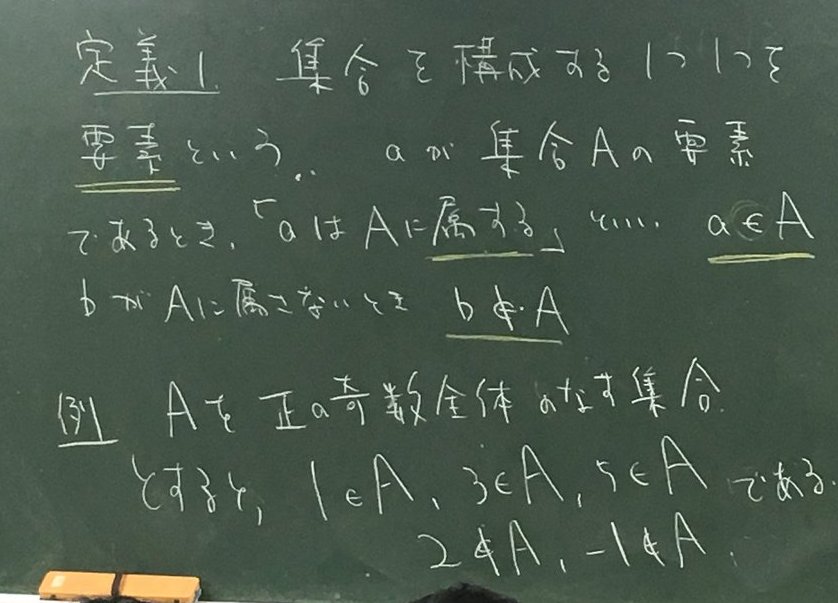 定義1. 集合を構成する1つ1つを
要素という. aが集合Aの要素
であるとき、「aはAに属する」といい、a∈A
bがAに属さないとき b∉A
例 Aを正の奇数全体のなす集合
とすると, 1∈A, 3∈A, 5∈A である.
2∉A, -1∉A.